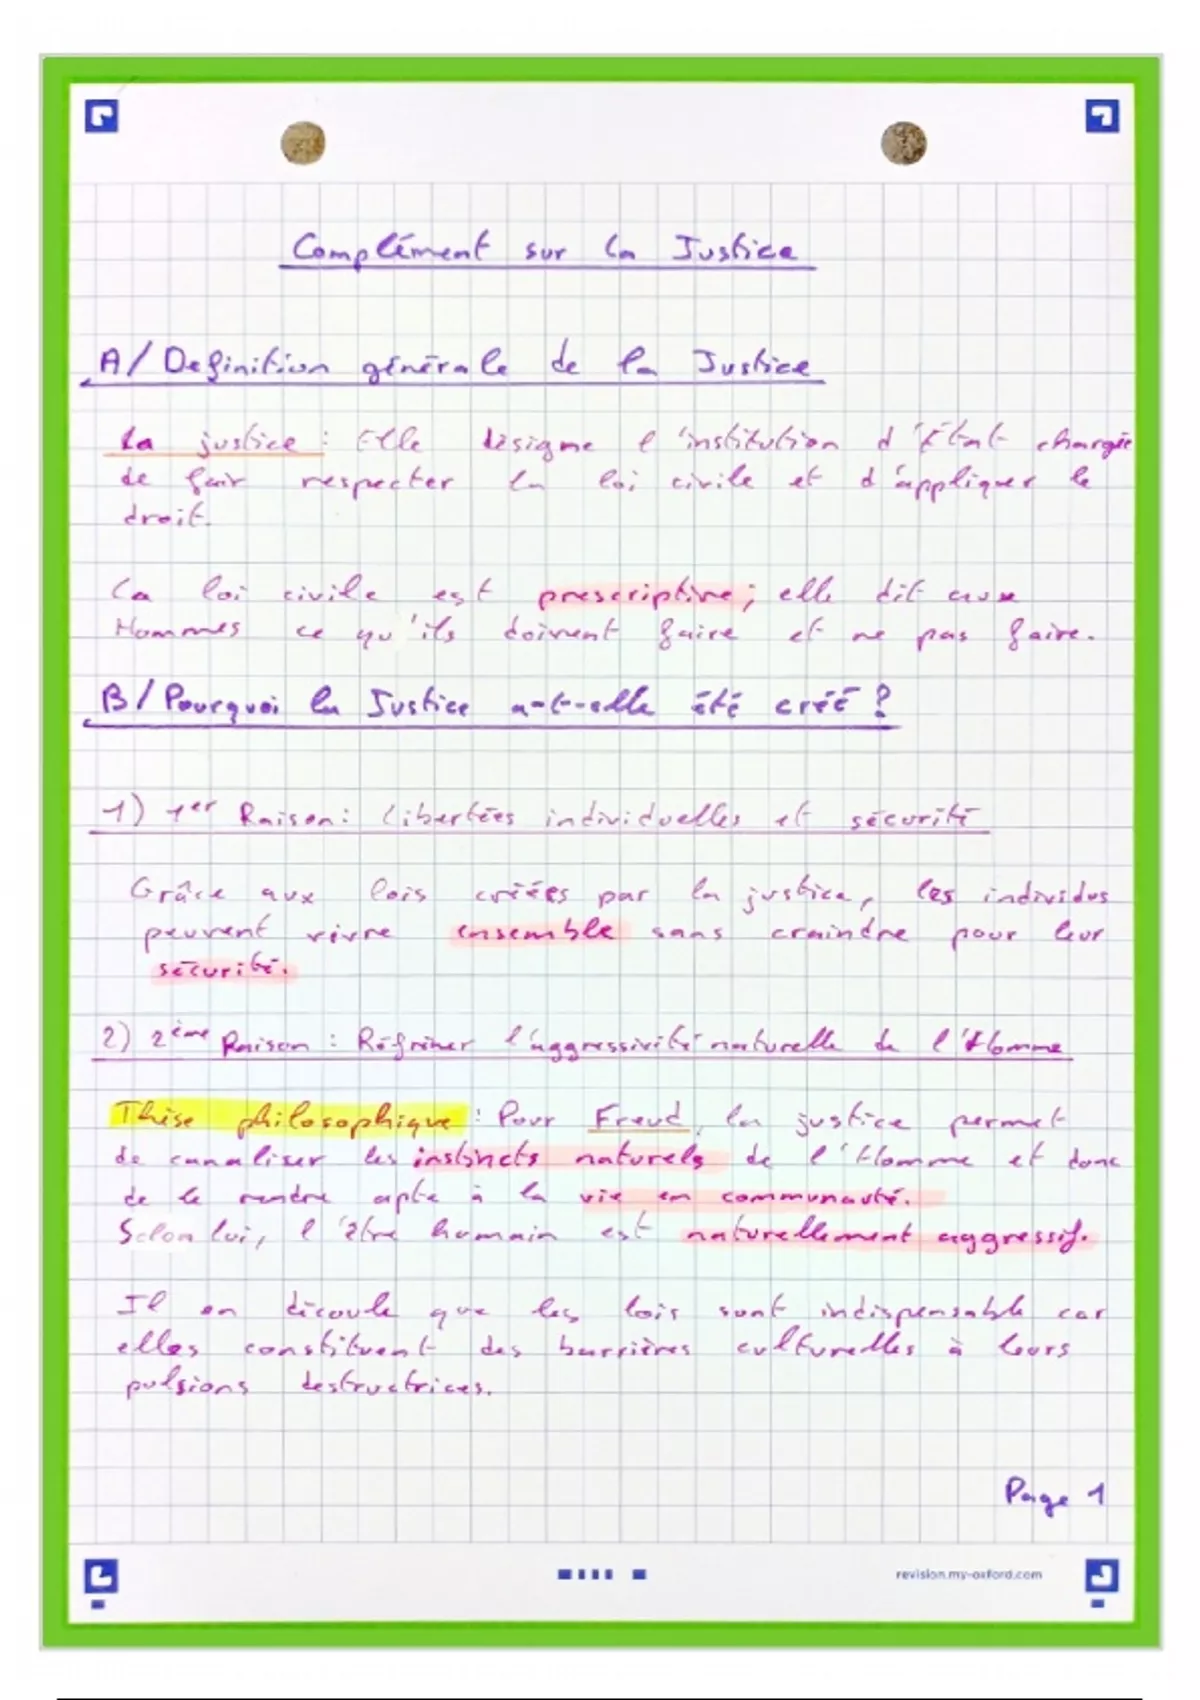 Complément sur la Justice
A/ Definition générale de la Justice
La justice : Elle désigne l'institution d'État chargée
de fair respecter la loi civile et d'appliquer le
droit.
La loi civile est prescriptive ; elle dit aux
Hommes ce qu'ils doivent faire et ne pas faire.
B/ Pourquoi la Justice a-t-elle été créé ?
1) 1er Raison : Libertées individuelles et sécurité
Grâce aux lois créées par la justice, les individus
peuvent vivre ensemble sans craindre pour leur
sécurité.
2) 2ème Raison : Réfréner l'aggressivité naturelle de l'Homme
Thèse philosophique : Pour Freud, la justice permet
de canaliser les instincts naturels de l'Homme et donc
de le rendre apte à la vie en communauté.
Selon lui, l'être humain est naturellement aggressif.
Il en découle que les lois sont indispensable car
elles constituent des barrières culturelles à leurs
pulsions destructrices.
Page 1
revision.my-oxford.com